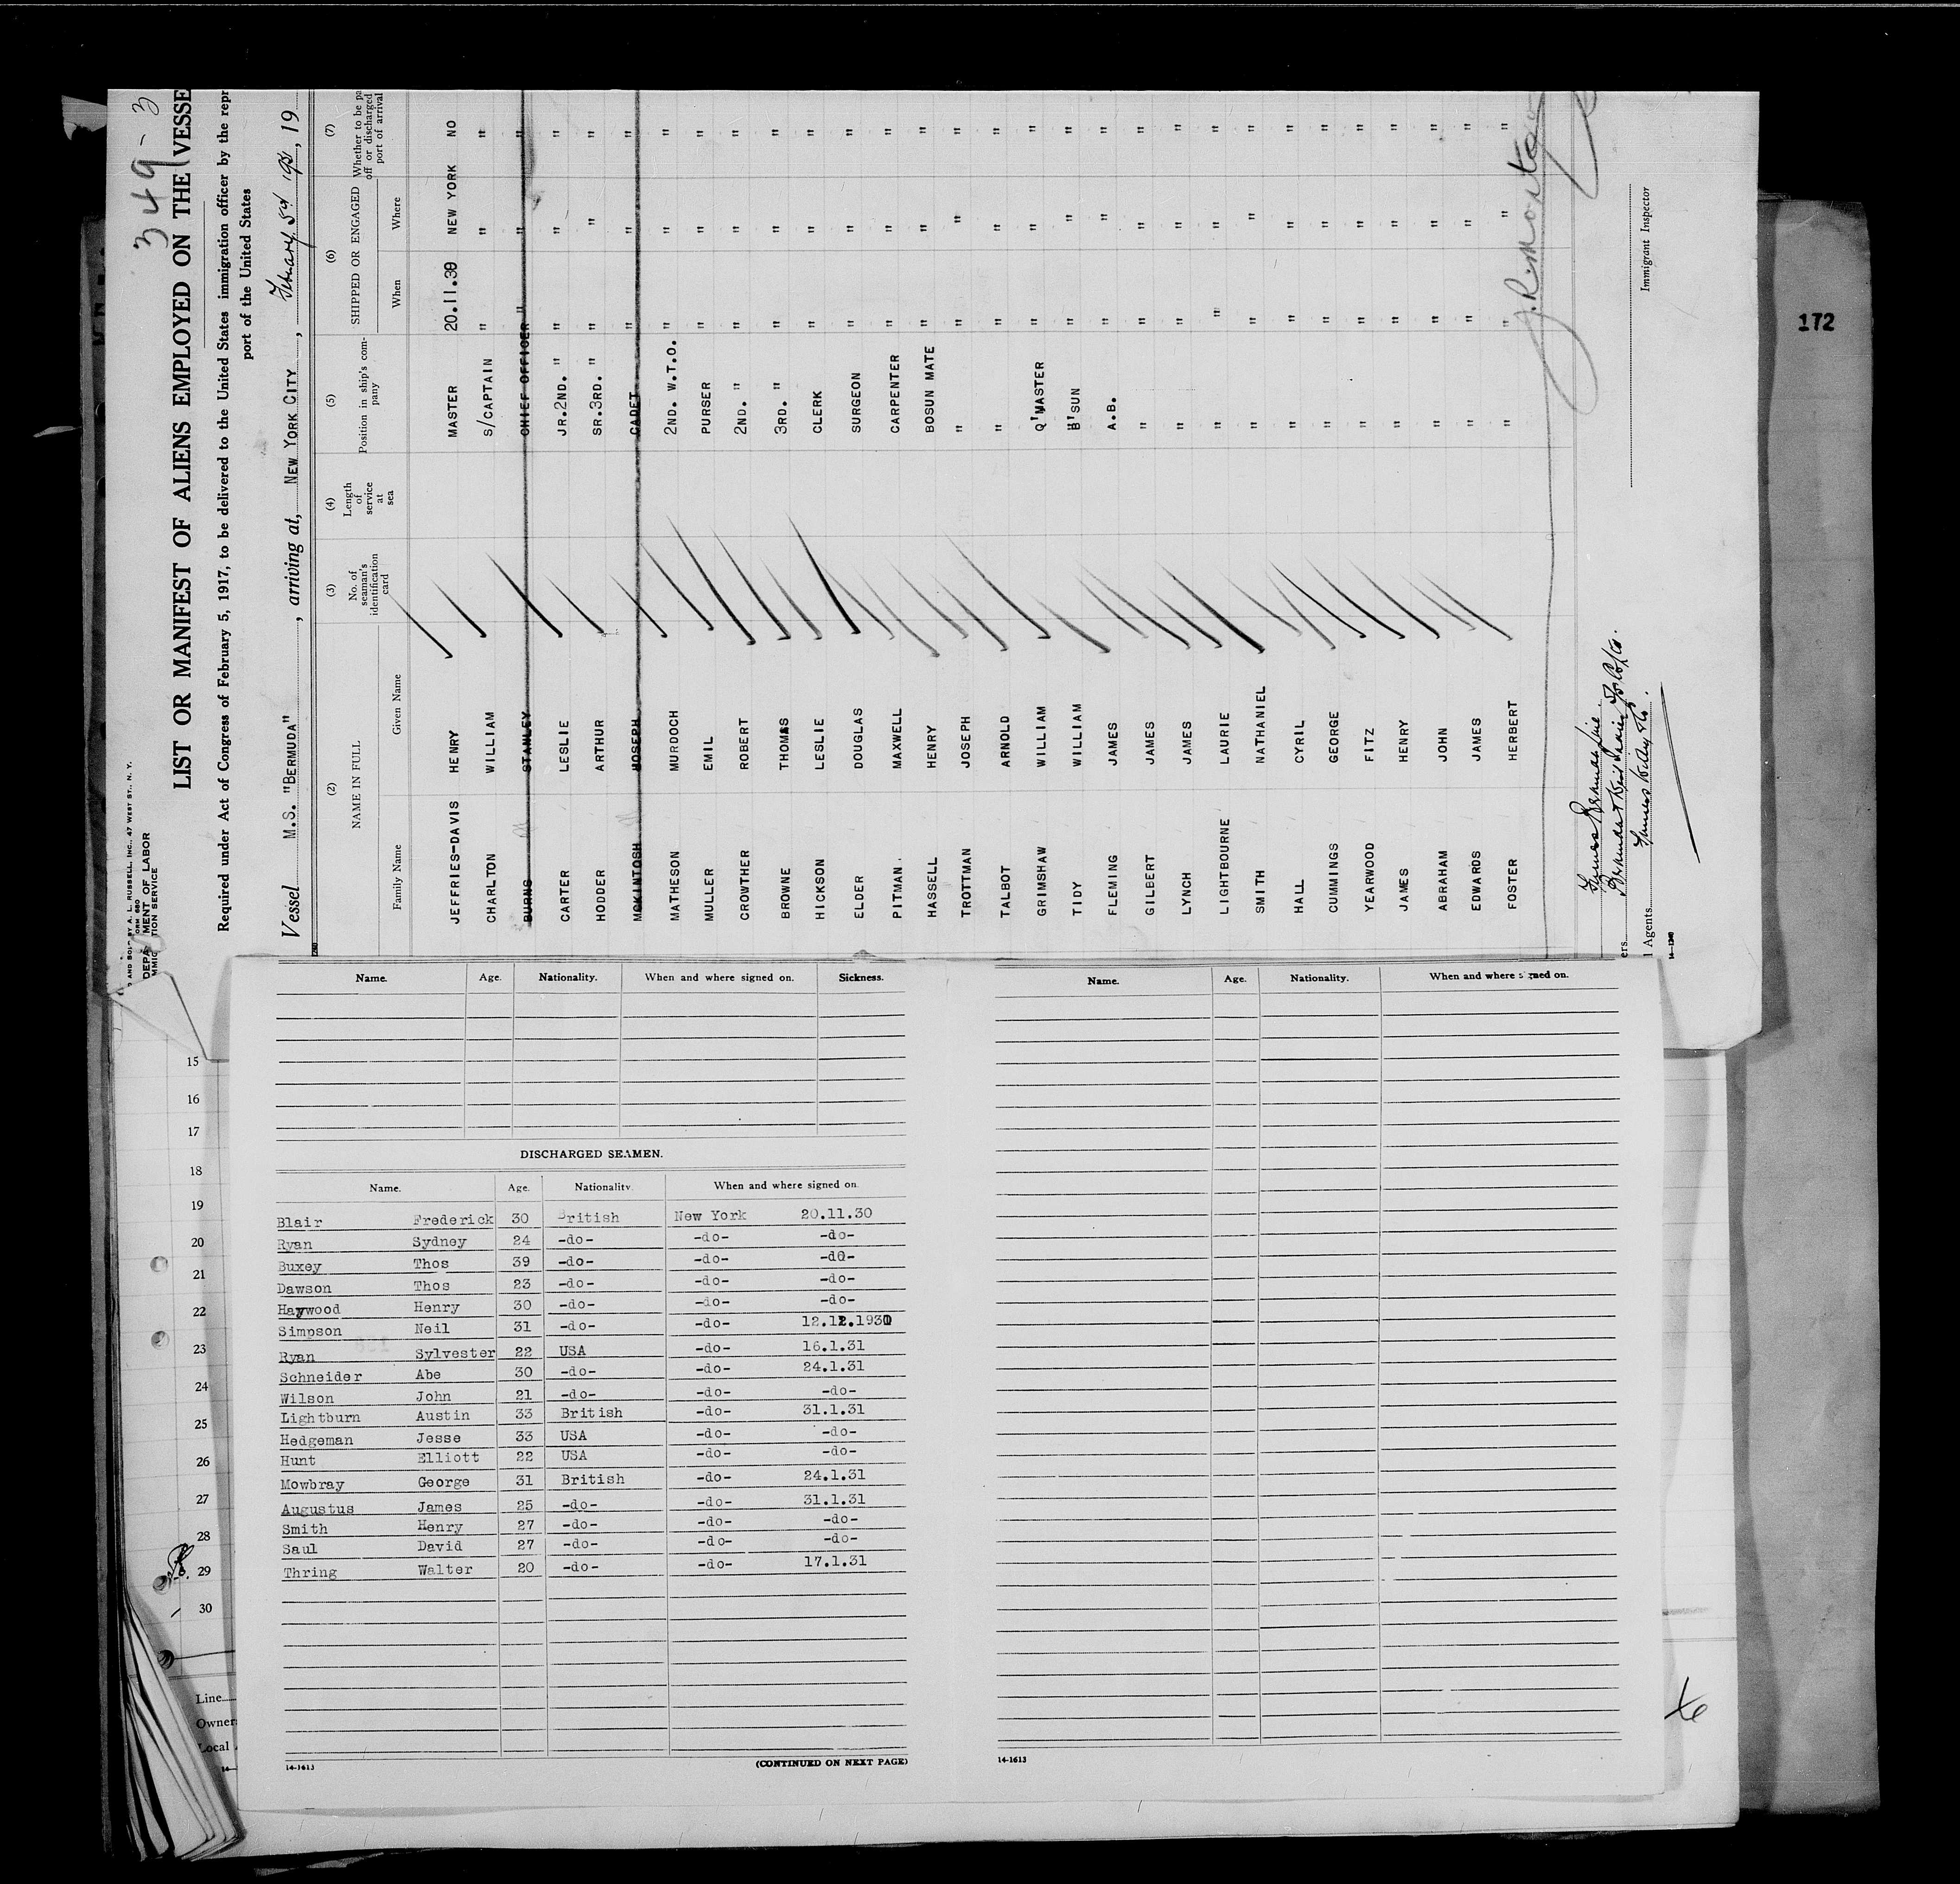 349-3
AND SOLD BY A. L. RUSSELL, INC., 47 WEST ST., N. Y.
ORM 680
DEPA MENT OF LABOR
MMIG TION SERVICE
LIST OR MANIFEST OF ALIENS EMPLOYED ON THE VESSE
Required under Act of Congress of February 5, 1917, to be delivered to the United States immigration officer by the repr
port of the United States
Vessel M.S. "BERMUDA", arriving at, NEW YORK CITY, February 5th 1931, 19
(2) (3) (4) (5) (6) (7)
NAME IN FULL No. of seaman's identification card Length of service at sea Position in ship's company SHIPPED OR ENGAGED Whether to be pa off or discharged port of arrival
Family Name Given Name When Where
JEFFRIES-DAVIS HENRY MASTER 20.11.30 NEW YORK NO
CHARLTON WILLIAM S/CAPTAIN " " "
BURNS STANLEY CHIEF OFFICER " " "
CARTER LESLIE JR.2ND. " " " "
HODDER ARTHUR SR.3RD. " " " "
MCKINTOSH JOSEPH CADET " " "
MATHESON MURDOCH 2ND. W.T.O. " " "
MULLER EMIL PURSER " " "
CROWTHER ROBERT 2ND. " " " "
BROWNE THOMAS 3RD. " " " "
HICKSON LESLIE CLERK " " "
ELDER DOUGLAS SURGEON " " "
PITMAN. MAXWELL CARPENTER " " "
HASSELL HENRY BOSUN MATE " " "
TROTTMAN JOSEPH " " " "
TALBOT ARNOLD " " " "
GRIMSHAW WILLIAM Q'MASTER " " "
TIDY WILLIAM B'SUN " " "
FLEMING JAMES A.B. " " "
GILBERT JAMES " " " "
LYNCH JAMES " " " "
LIGHTBOURNE LAURIE " " " "
SMITH NATHANIEL " " " "
HALL CYRIL " " " "
CUMMINGS GEORGE " " " "
YEARWOOD FITZ " " " "
JAMES HENRY " " " "
ABRAHAM JOHN " " " "
EDWARDS JAMES " " " "
FOSTER HERBERT " " " "
Furness Bermuda Line.
ers
l Agents Furness Withy & Co.
Immigrant Inspector
14-1240
172
Name. Age. Nationality. When and where signed on. Sickness.
DISCHARGED SEAMEN.
Name. Age. Nationality. When and where signed on.
Blair Frederick 30 British New York 20.11.30
Ryan Sydney 24 -do- -do- -do-
Buxey Thos 39 -do- -do- -do-
Dawson Thos 23 -do- -do- -do-
Haywood Henry 30 -do- -do- -do-
Simpson Neil 31 -do- -do- 12.12.1930
Ryan Sylvester 22 USA -do- 16.1.31
Schneider Abe 30 -do- -do- 24.1.31
Wilson John 21 -do- -do- -do-
Lightburn Austin 33 British -do- 31.1.31
Hedgeman Jesse 33 USA -do- -do-
Hunt Elliott 22 USA -do- -do-
Mowbray George 31 British -do- 24.1.31
Augustus James 25 -do- -do- 31.1.31
Smith Henry 27 -do- -do- -do-
Saul David 27 -do- -do- -do-
Thring Walter 20 -do- -do- 17.1.31
14-1613
(CONTINUED ON NEXT PAGE)
Name. Age. Nationality. When and where signed on.
14-1613
15
16
17
18
19
20
21
22
23
24
25
26
27
28
29
30
Line
Owner
Local
14-